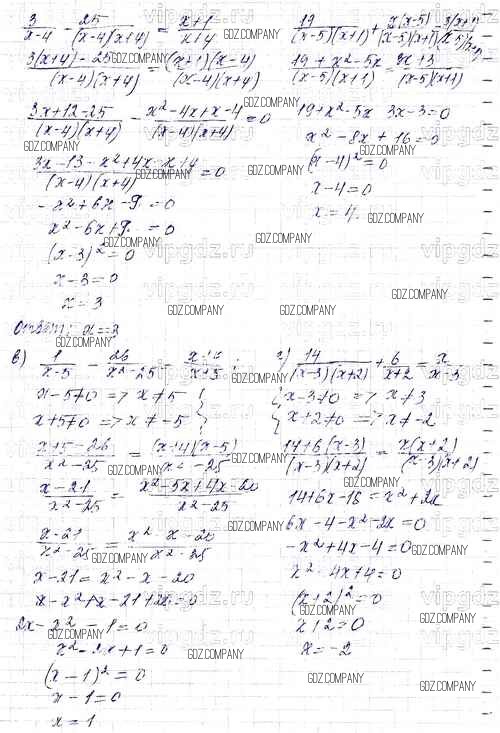 3/(x-4) - 25/((x-4)(x+4)) = (x+1)/(x+4)
(3(x+4)-25)/((x-4)(x+4)) = ((x+1)(x-4))/((x-4)(x+4))
(3x+12-25)/((x-4)(x+4)) - (x²-4x+x-4)/((x-4)(x+4)) = 0
(3x-13-x²+4x-x+4)/((x-4)(x+4)) = 0
-x²+6x-9=0
x²-6x+9=0
(x-3)²=0
x-3=0
x=3
Ответ: x=3
19/((x-5)(x+1)) + x(x-5)/((x-5)(x+1)) = 3(x+1)/((x-5)(x+1))
19+x²-5x 3x-3=0
x²-8x+16=0
(x-4)²=0
x-4=0
x=4
в) 1/(x-5) - 26/(x²-25) = (x+4)/(x+5);
x-5≠0 => x≠5
x+5≠0 => x≠-5
(x+5-26)/(x²-25) = ((x+4)(x-5))/(x²-25)
(x-21)/(x²-25) = (x²-5x+4x-20)/(x²-25)
(x-21)/(x²-25) = (x²-x-20)/(x²-25)
x-21=x²-x-20
x-x²+x-21+20=0
2x-x²-1=0
x²-2x+1=0
(x-1)²=0
x-1=0
x=1
г) 14/((x-3)(x+2)) + 6/(x+2) = x/(x-3)
x-3≠0 => x≠3
x+2≠0 => x≠-2
(14+6(x-3))/((x-3)(x+2)) = x(x+2)/((x-3)(x+2))
14+6x-18=x²+2x
6x-4-x²-2x=0
-x²+4x-4=0
x²-4x+4=0
(x+2)²=0
x+2=0
x=-2
GDZ.COMPANY
vipgdz.ru